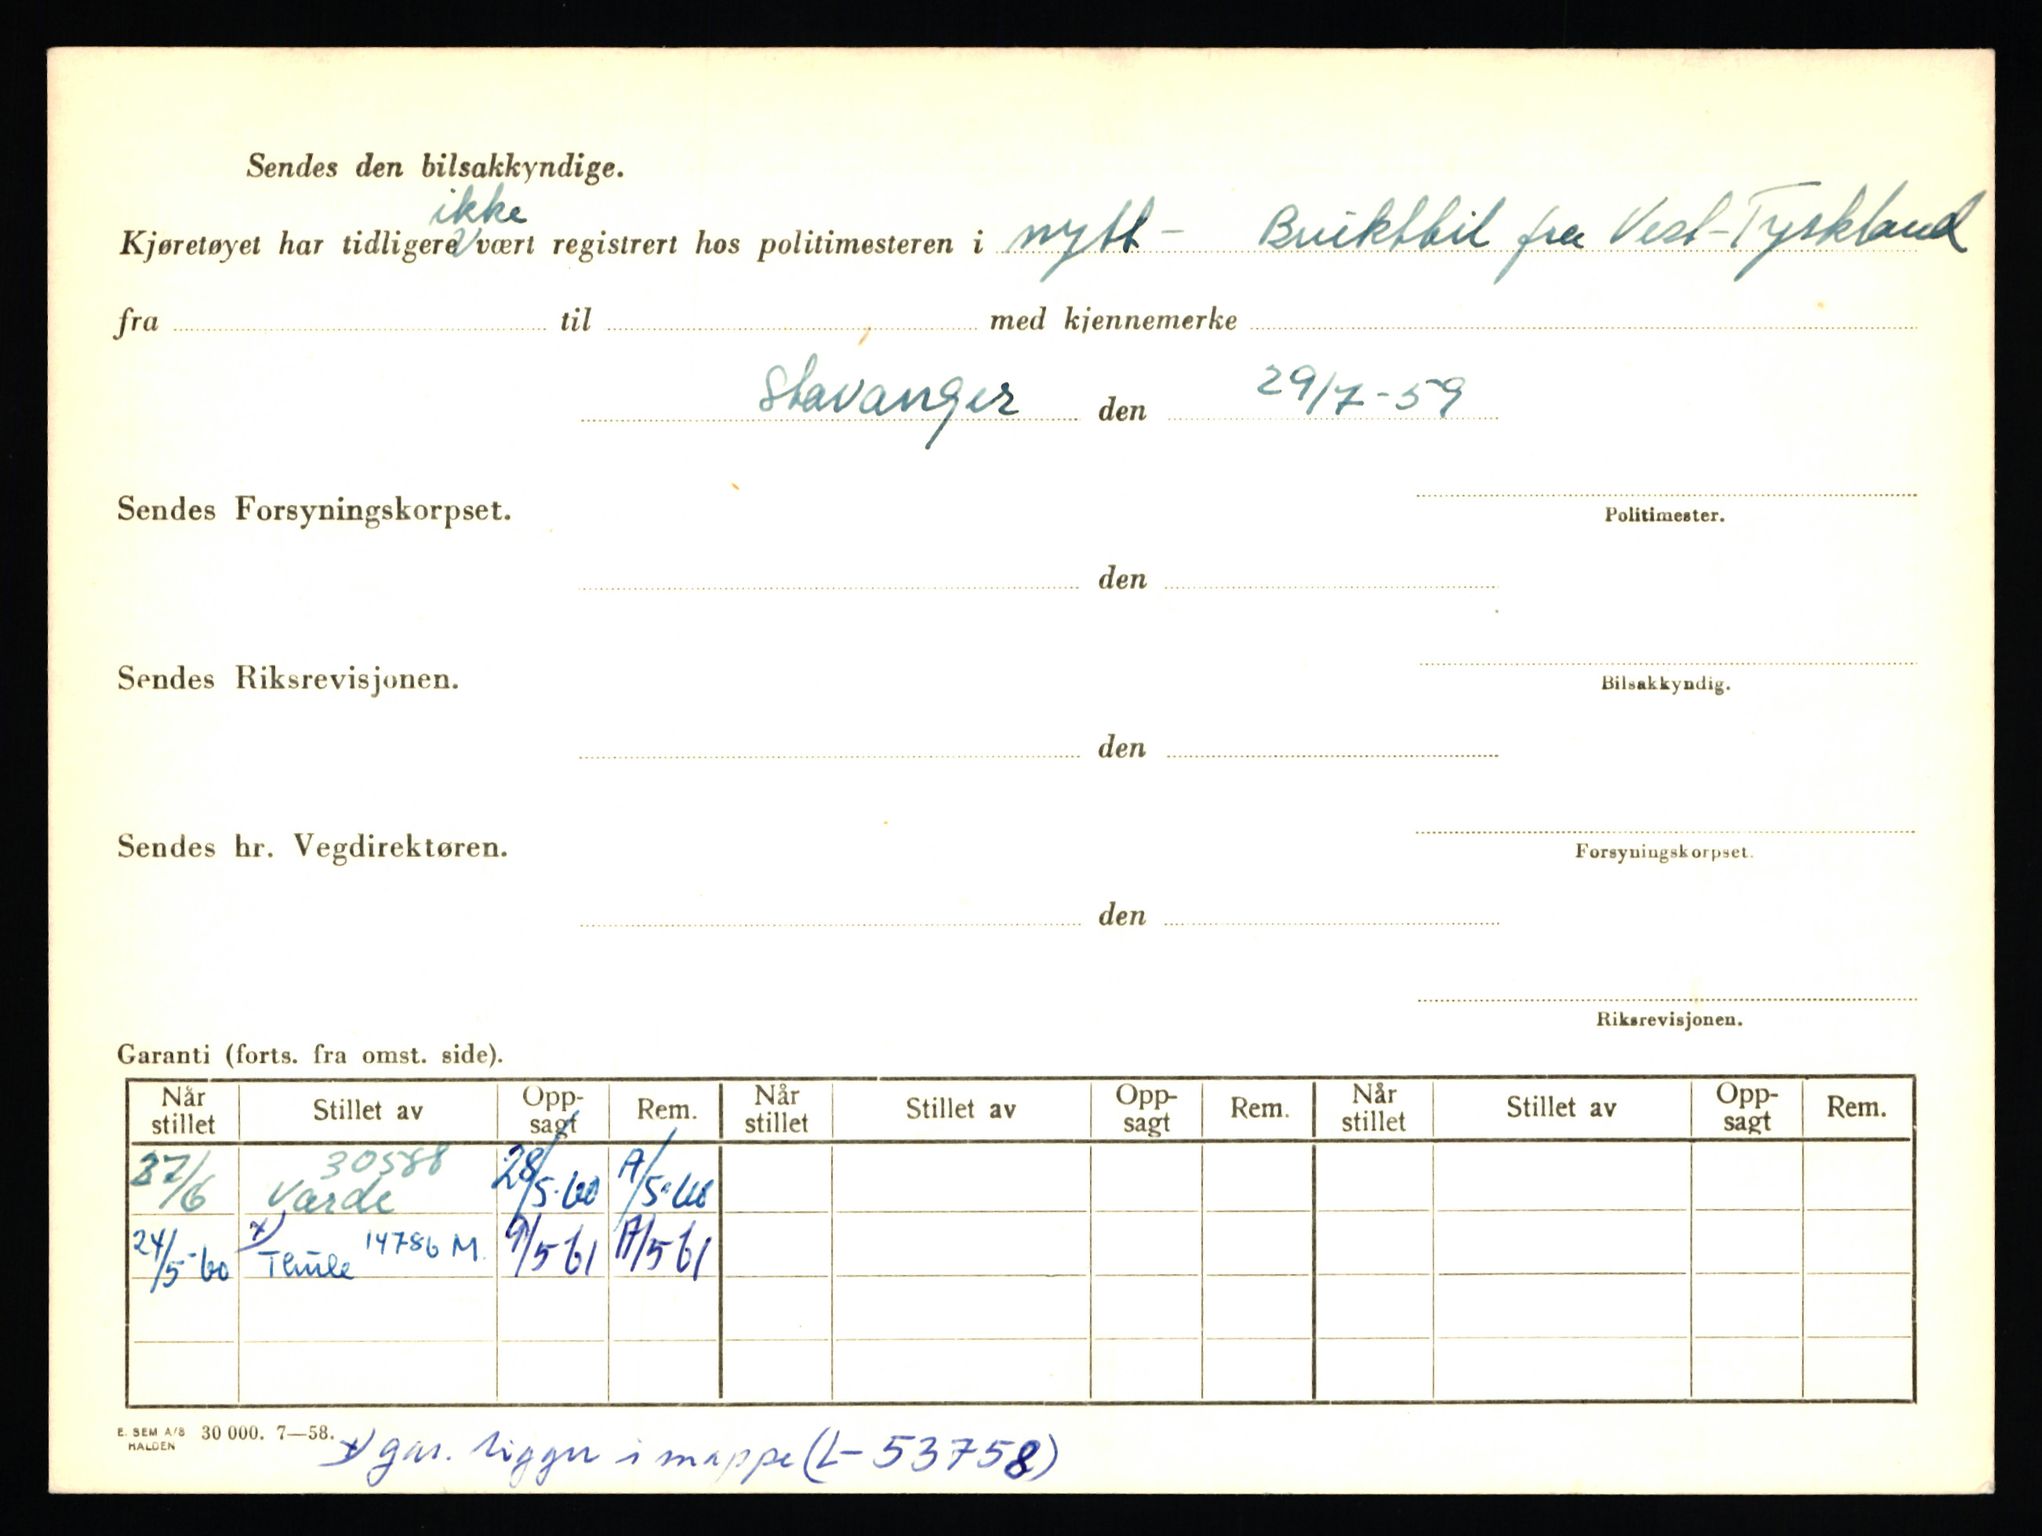 Sendes den bilsakkyndige.
ikke
Kjøretøyet har tidligere V vært registrert hos politimesteren i nytt - Bruktbil fra Vest-Tyskland
fra til med kjennemerke
Stavanger den 29/7-59
Sendes Forsyningskorpset.
Politimester.
den
Sendes Riksrevisjonen.
Bilsakkyndig.
den
Sendes hr. Vegdirektøren.
Forsyningskorpset.
den
Riksrevisjonen.
Garanti (forts. fra omst. side).
Når stillet Stillet av Opp-sagt Rem. Når stillet Stillet av Opp-sagt Rem. Når stillet Stillet av Opp-sagt Rem.
27/6 30588 Varde 28/5-60 A/5-60
24/5-60 x) Thule 14786 M. 9/5 61 A/5 61
E. SEM A/S HALDEN 30 000. 7—58.
x) gar. ligger i mappe (L-53758)